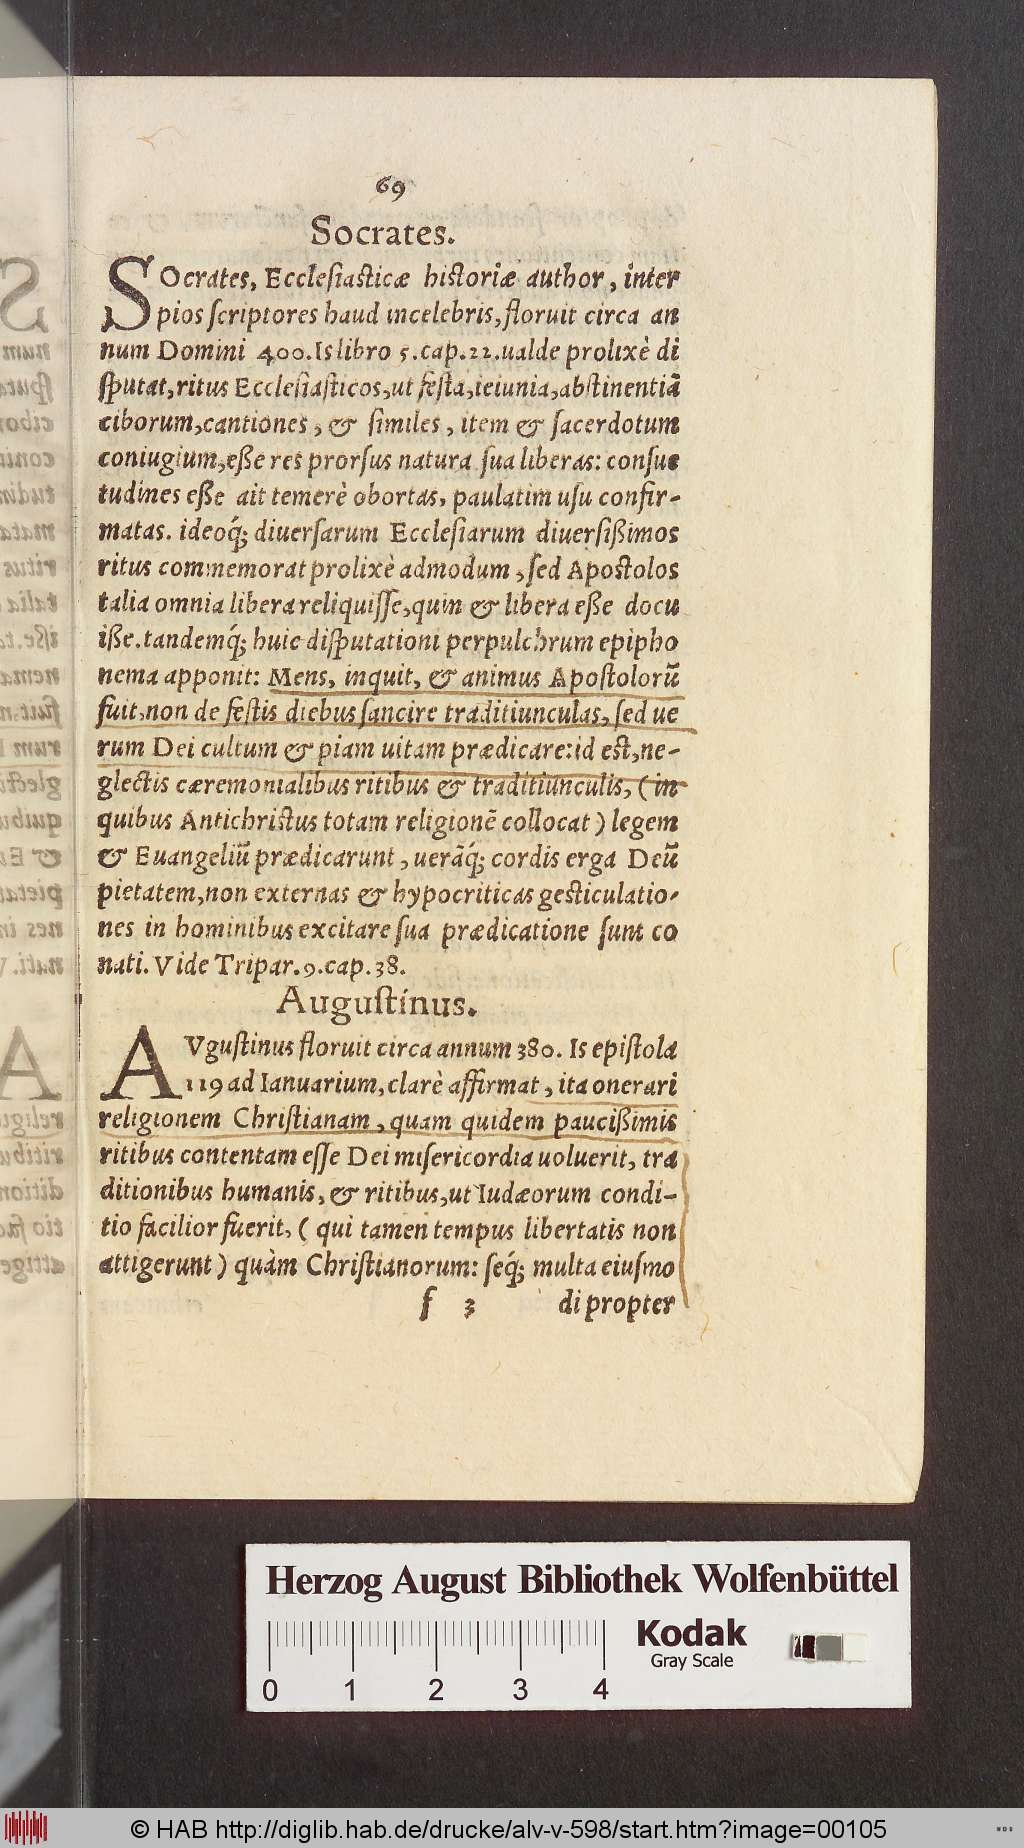 69
Socrates.
SOcrates, Ecclesiasticæ historiæ author, inter
pios scriptores haud incelebris, floruit circa an
num Domini 400. Is libro 5. cap. 22. ualde prolixè di
sputat, ritus Ecclesiasticos, ut festa, ieiunia, abstinentiã
ciborum, cantiones, & similes, item & sacerdotum
coniugium, eße res prorsus natura sua liberas: consue
tudines eße ait temerè obortas, paulatim usu confir-
matas. ideoq́; diuersarum Ecclesiarum diuersißimos
ritus commemorat prolixè admodum, sed Apostolos
talia omnia libera reliquisse, quin & libera eße docu
iße. tandemq́; huic disputationi perpulchrum epipho
nema apponit: Mens, inquit, & animus Apostolorũ
fuit, non de festis diebus sancire traditiunculas, sed ue
rum Dei cultum & piam uitam prædicare: id est, ne-
glectis cæremonialibus ritibus & traditiunculis, (in
quibus Antichristus totam religionẽ collocat) legem
& Euangeliũ prædicarunt, uerãq́; cordis erga Deũ
pietatem, non externas & hypocriticas gesticulatio-
nes in hominibus excitare sua prædicatione sunt co
nati. Vide Tripar. 9. cap. 38.
Augustinus.
AVgustinus floruit circa annum 380. Is epistola
119 ad Ianuarium, clarè affirmat, ita onerari
religionem Christianam, quam quidem paucißimis
ritibus contentam esse Dei misericordia uoluerit, tra
ditionibus humanis, & ritibus, ut Iudæorum condi-
tio facilior fuerit, (qui tamen tempus libertatis non
attigerunt) quàm Christianorum: seq́; multa eiusmo
f 3 di propter
Herzog August Bibliothek Wolfenbüttel
Kodak
Gray Scale
0 1 2 3 4
© HAB http://diglib.hab.de/drucke/alv-v-598/start.htm?image=00105